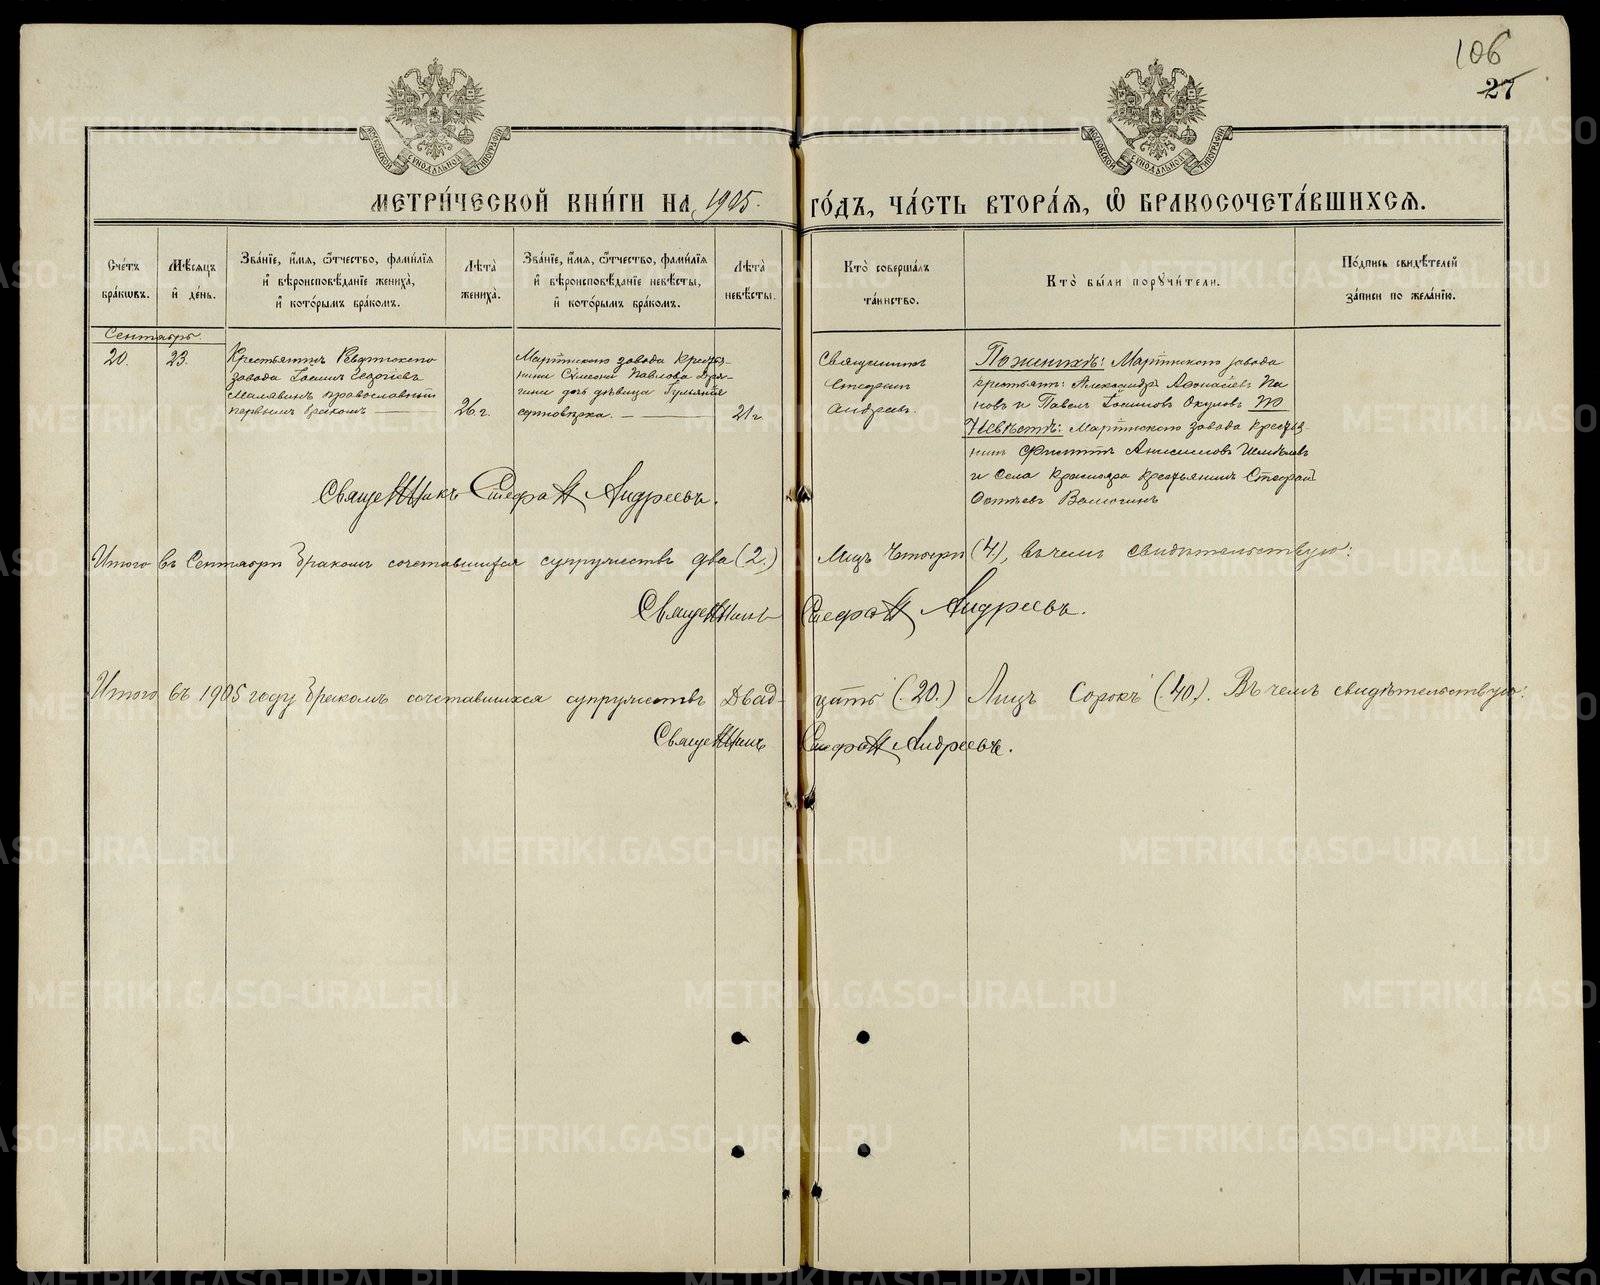 106
27
МОСКОВСКОЙ СѴНОДАЛЬНОЙ ТИПОГРАФІИ
МОСКОВСКОЙ СѴНОДАЛЬНОЙ ТИПОГРАФІИ
МЕТРИ́ЧЕСКОЙ КНИ́ГИ НА 1905. ГО́ДЪ, ЧА́СТЬ ВТОРА́Я, Ѽ БРАКОСОЧЕТА́ВШИХСЯ.
Сче́тъ бра́кѡвъ.
Мѣ́сяцъ и҆ де́нь.
Зва́нїе, и҆́мя, ѻ҆́тчество, фами́лїя и҆ вѣроисповѣ́данїе жениха̀, и҆ кото́рымъ бра́комъ.
Лѣ́та жениха̀.
Зва́нїе, и҆́мя, ѻ҆́тчество, фами́лїя и҆ вѣроисповѣ́данїе невѣ́сты, и҆ кото́рымъ бра́комъ.
Лѣ́та невѣ́сты.
Кто̀ соверша́лъ та́инство.
Кто̀ бы́ли порꙋчи́тели.
По́дпись свидѣ́телей за́писи по жела́нїю.
Сентябрь
20.
23.
Крестьянинъ Ревдинскаго
завода Іоаннъ Георгіевъ
Малявинъ православный
первымъ бракомъ
26 г.
Мартинскаго завода крестья-
нина Симеона Павлова
дочь дѣвица
21 г.
Священникъ
Стефанъ
Андреевъ.
По женихѣ: Мартинскаго завода
крестьян: Александръ Афонасіевъ Па
новъ и Павелъ Іоанновъ Окуловъ По
Невѣстѣ: Мартинскаго завода кресть
нинъ Филиппъ Анисимовъ
и Села Краснояра Крестьянинъ Стефанъ
Священникъ Стефанъ Андреевъ.
Итого въ Сентябри бракомъ сочетавшихся супружествъ два (2.) Лицъ Четыри (4), въ чемъ свидѣтельствую:
Священникъ Стефанъ Андреевъ.
Итого въ 1905 году бракомъ сочетавшихся супружествъ Двад-цать (20.) Лицъ Сорокъ (40). Въ чемъ свидѣтельствую:
Священникъ Стефанъ Андреевъ.
METRIKI.GASO-URAL.RU